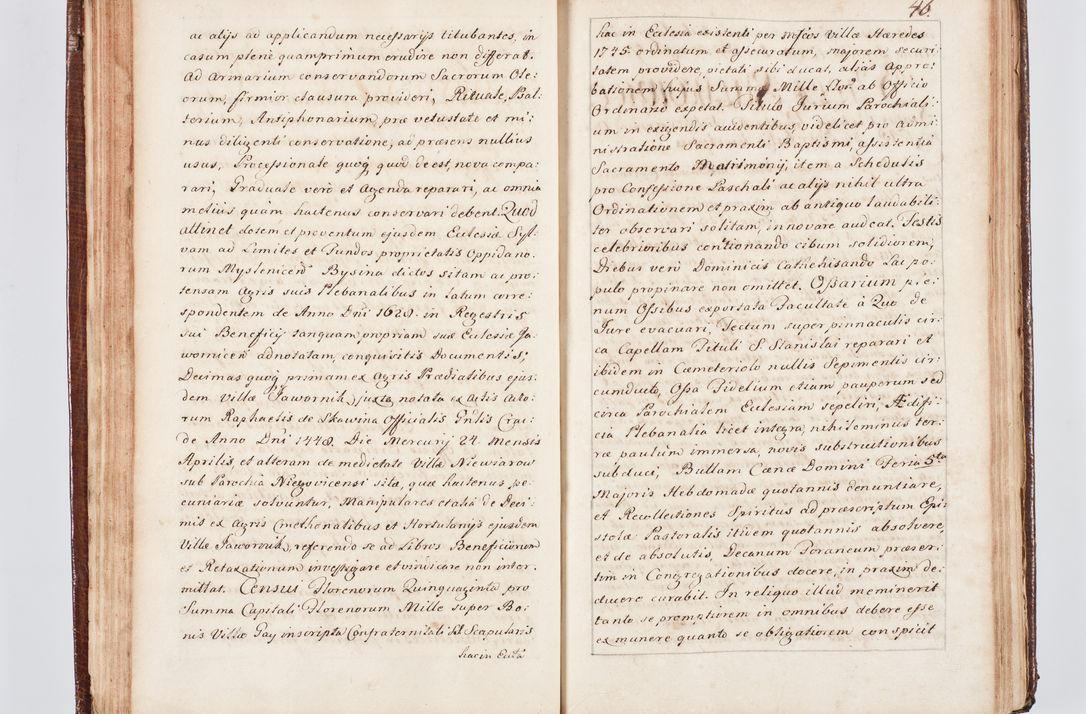 ac alijs ad applicandum necessarijs titubantes, in
casum plenè quamprimum erudire non differat.
Ad Armarium conservandorum Sacrorum Ole:
orum, firmior clausura provideri, Rituale, Psal:
terium, Antiphonarium, præ vetustate et mi:
nus diligenti conservatione, ad præsens nullius
usus, Processionale quoq quod deest, nova compa:
rari, Graduale verò et Agenda reparari, ac omnia
melius quàm hactenus conservari debent. Quod
attinet dotem et proventum ejusdem Ecclesiæ Syl:
vam ad Limites et Fundos proprietatis Oppidano:
rum Myslenicen Bysina dictos sitam ac pro:
tensam Agris suis Plebanalibus in latum corre:
spondentem de Anno Dni 1628. in Regestris
sui Beneficij tanquam propriam suæ Ecclesiæ Ja:
wornicen adnotatam, conquivitis Documentis;
Decimas quoq primam ex Agris Prædialibus ejus:
dem Villæ Jawornik juxta notata ex Actis Acto:
rum Raphaelis de Skawina Officialis Gnlis Crac:
de Anno Dni 1448. Die Mercurij 24. Mensis
Aprilis, et alteram de medietate Villæ Niewiarow
sub Parochia Niegovicensi sitæ, quæ hactenus pe:
cuniariæ solvuntur, Manipulares etiam de Deci:
mis ex Agris Cmethonalibus et Hortulanijs ejusdem
Villæ Jawornik, referendo se ad Libros Beneficiorum
et Retaxationum investigare et vindicare non inter:
mittat. Census Florenorum Quinquaginta pro
Summa Capitali Florenorum Mille super Bo:
nis Villæ Gay inscripta Confraternitati SS Scapularis
hac in Eccla
46.
hac in Eclesia existenti per Mfcos Villæ Hæredes
1745 ordinatum et assecuratum, majorem securi:
tatem providere, pietati sibi ducat, aliàs Appro:
bationem hujus Summæ Mille flor ab Officio
Ordinario expetat. Titulo Jurium Parochiali:
um in exigendis accidentibus, videlicet pro Admi:
nistratione Sacramenti Baptismi, assistentia
Sacramento Matrimonij, item a Schedulis
pro Confessione Paschali ac alijs nihil ultra
Ordinationem et praxim ab antiquo laudabili:
ter observari solitam, innovare audeat. Festis
celebrioribus concionando cibum solidiorem,
Diebus verò Dominicis Cathehisando Lac po:
pulo propinare non omittet. Ossarium ple:
num Ossibus exportata Facultate à Quo de
Jure evacuari, Tectum super pinnaculis cir:
ca Capellam Tituli S Stanislai reparari et
ibidem in Cæmeteriolo nullis Sepimentis cir:
cumducto, Ossa Fidelium etiam pauperum sed
circa Parochialem Ecclesiam sepeliri, Ædifi:
cia Plebanalia licet integra, nihileminus ter:
ræ paulum immersa, novis substructionibus
subduci, Bullam Cænæ Domini Feria 5ta
Majoris Hebdomadæ quotannis denuntiare,
et Recollectiones Spiritus ad præscriptum Epi:
stolæ Pastoralis itidem quotannis absolvere,
et de absolutis, Decanum Foraneum, præser:
tim in Congregationibus docere, in praxim de:
ducere curabit. In reliquo illud meminerit
tanto se promptiorem in omnibus debere esse
ex munere quanto se obligatiorem conspicit